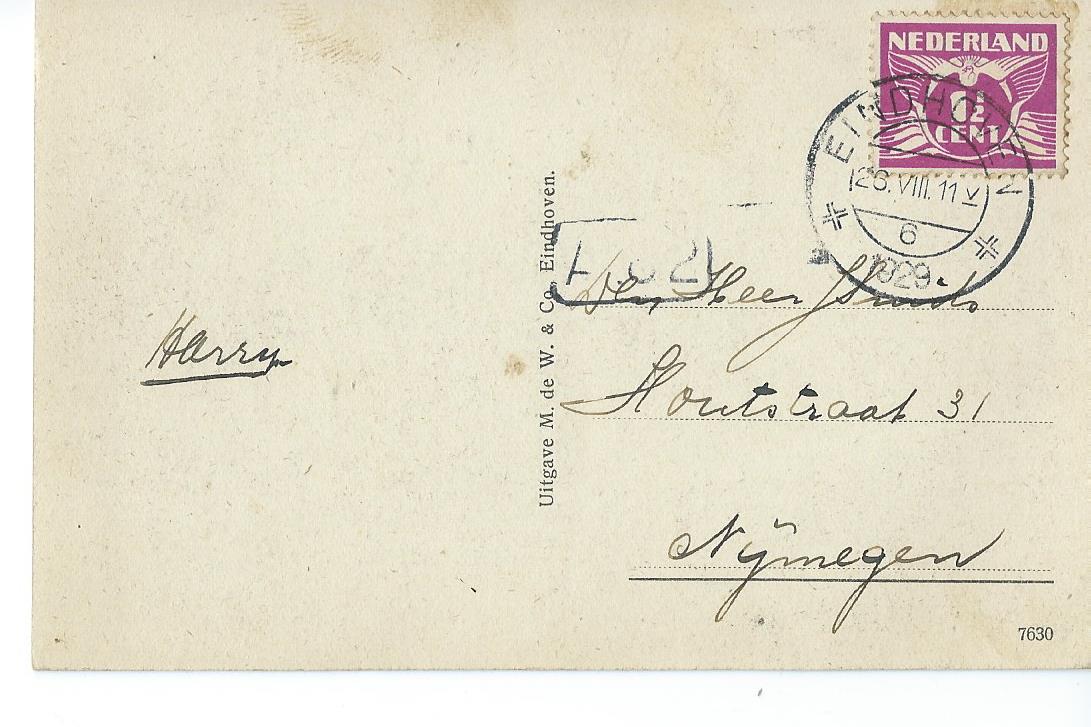 NEDERLAND
½
CENT
EINDHOVEN
26.VIII.11 V
6
1929
Uitgave M. de W. & Co. Eindhoven.
Heer
Harry
Houtstraat 31
Nÿmegen
7630